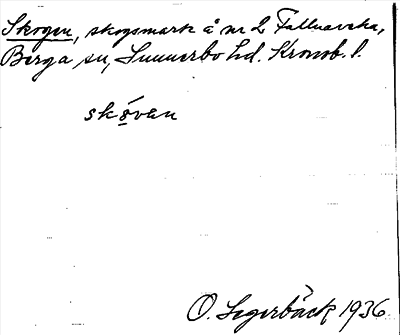 Skogen, skogsmark å nr 2 Fallnaveka,
Berga sn, Sunnerbo hd. Kronob. l.
skóvan
O. Segerbäck 1936